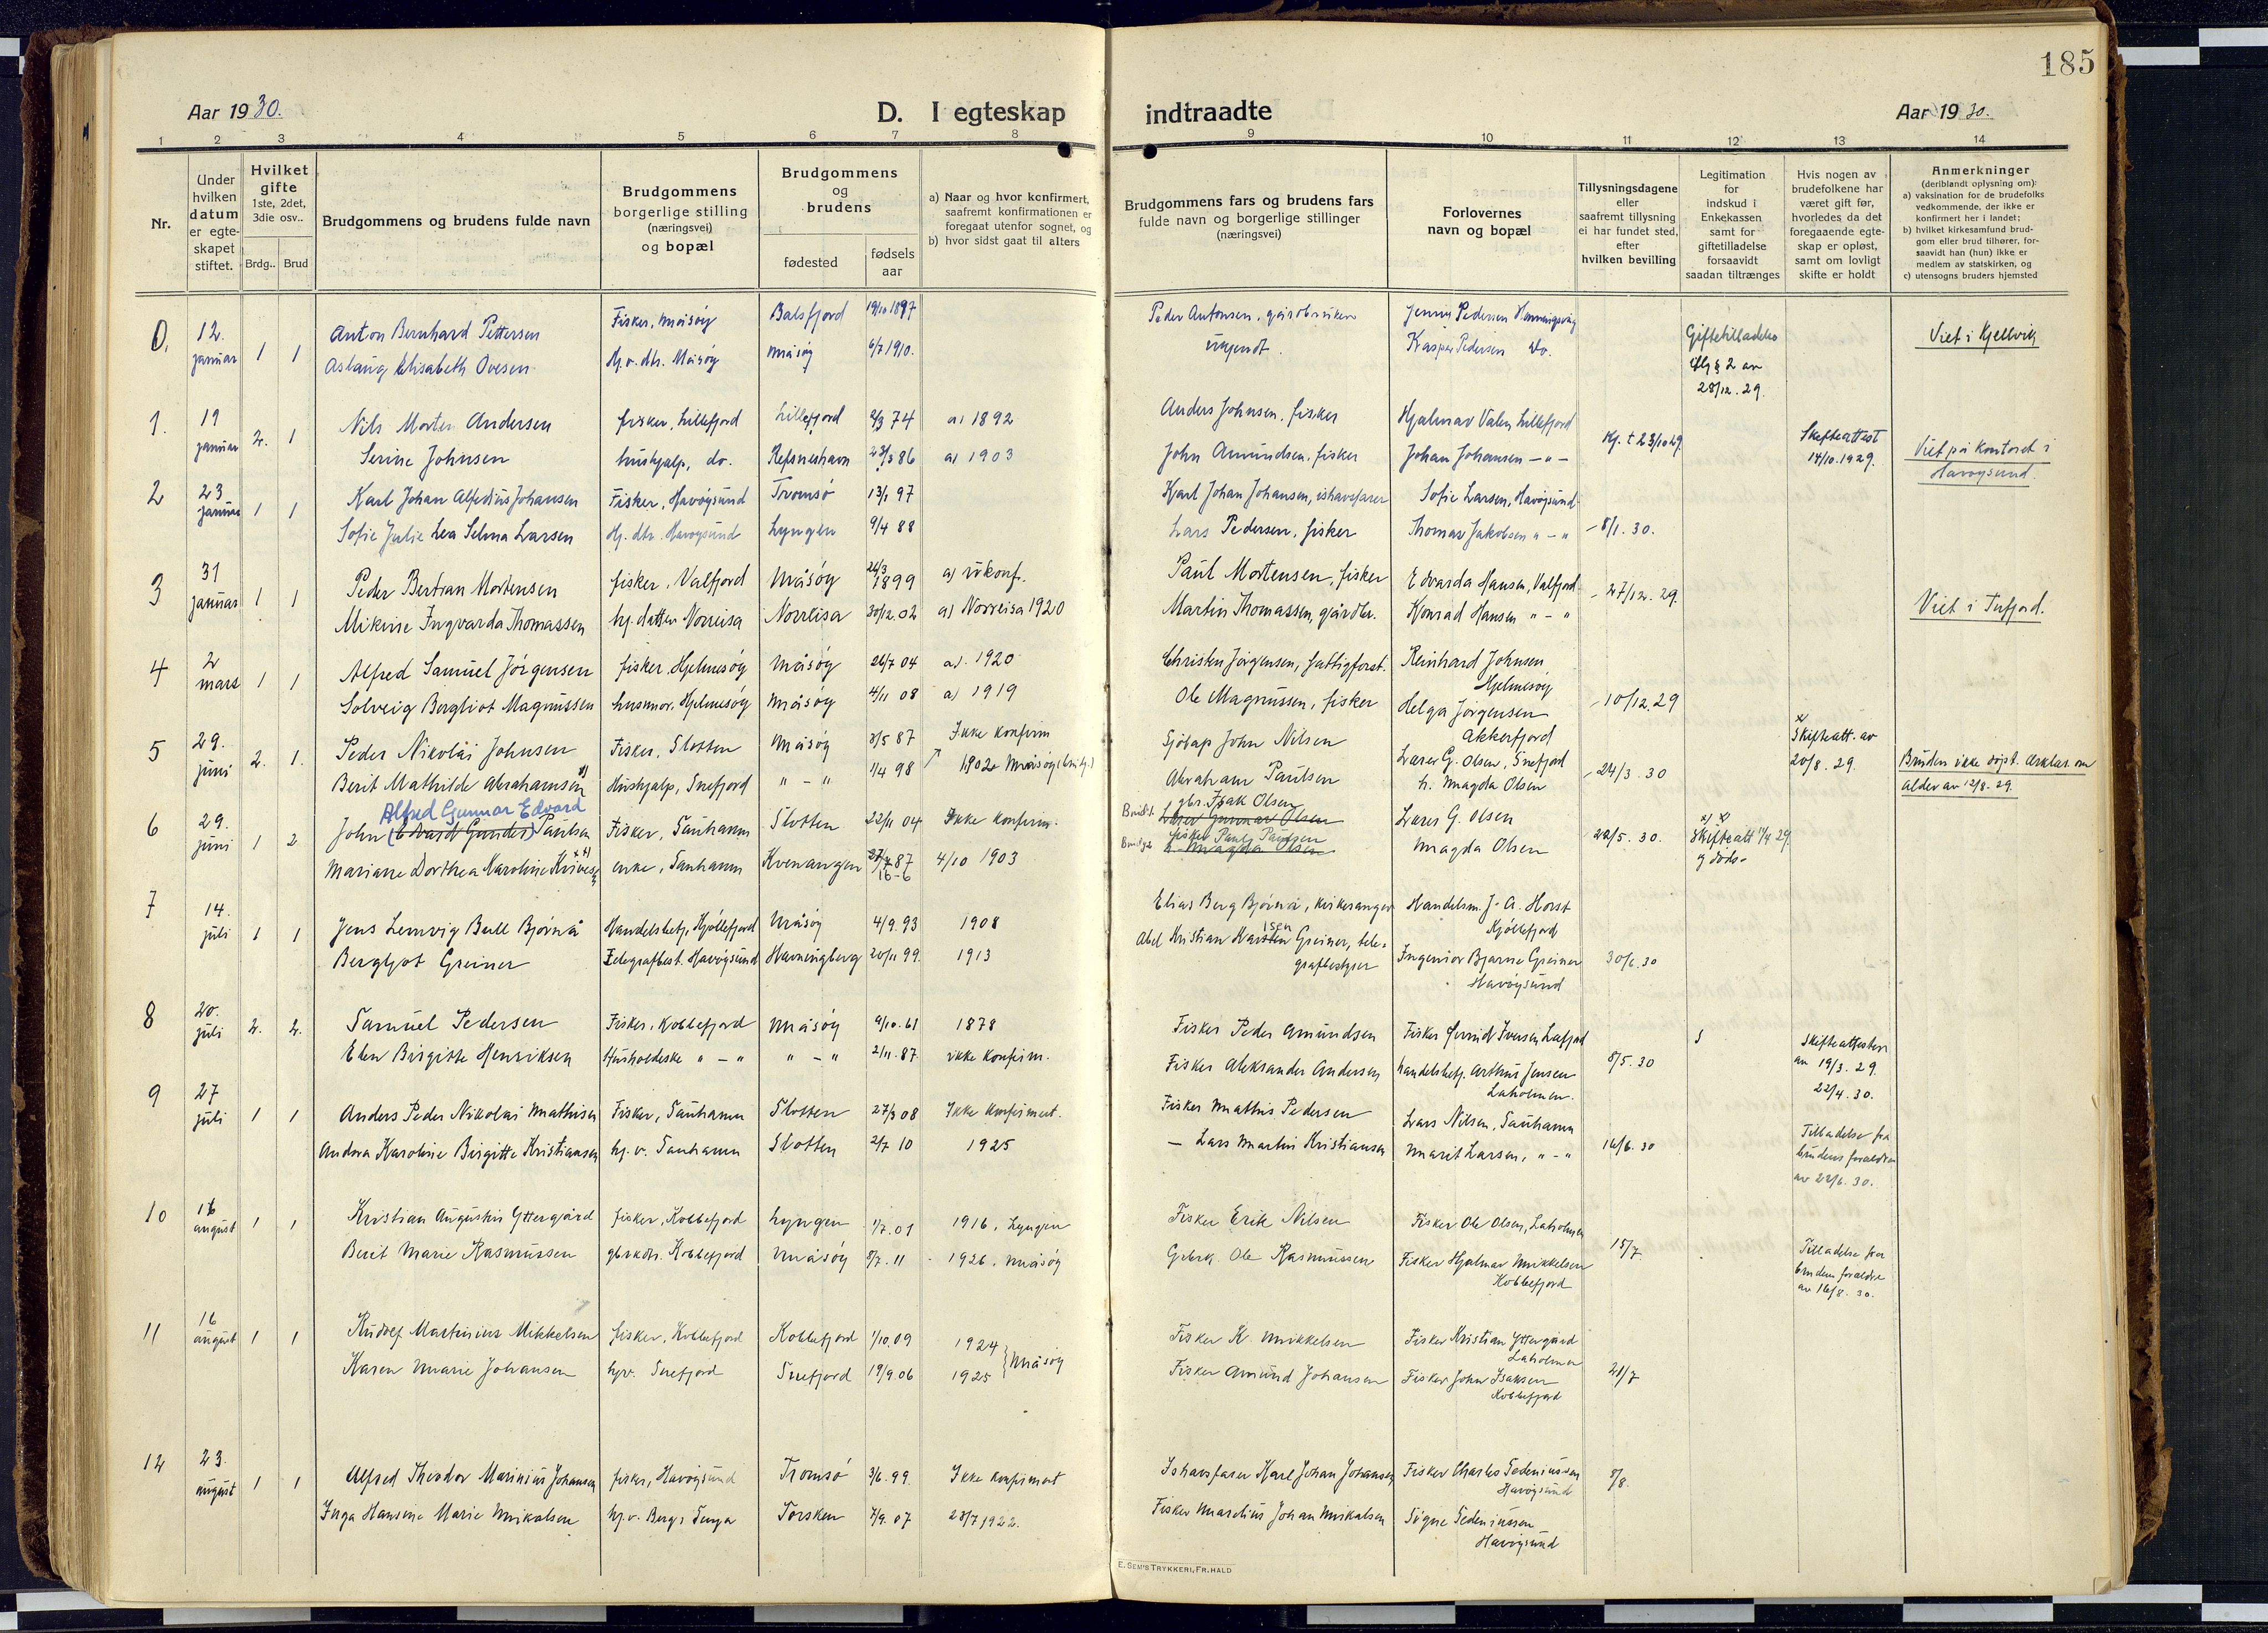 185
Aar 1930.
D. I egteskap indtraadte
Aar 1930.
1 2 3 4 5 6 7 8 9 10 11 12 13 14
Nr.
Under hvilken datum er egteskapet stiftet.
Hvilket gifte 1ste, 2det, 3die osv..
Brdg.. Brud
Brudgommens og brudens fulde navn
Brudgommens borgerlige stilling (næringsvei) og bopæl
Brudgommens og brudens
fødested
fødsels aar
a) Naar og hvor konfirmert, saafremt konfirmationen er foregaat utenfor sognet, og
b) hvor sidst gaat til alters
Brudgommens fars og brudens fars fulde navn og borgerlige stillinger (næringsvei)
Forlovernes navn og bopæl
Tillysningsdagene eller saafremt tillysning ei har fundet sted, efter hvilken bevilling
Legitimation for indskud i Enkekassen samt for giftetilladelse forsaavidt saadan tiltrænges
Hvis nogen av brudefolkene har været gift før, hvorledes da det foregaaende egteskap er opløst, samt om lovligt skifte er holdt
Anmerkninger (deriblandt oplysning om):
a) vaksination for de brudefolks vedkommende, der ikke er konfirmert her i landet;
b) hvilket kirkesamfund brudgom eller brud tilhører, forsaavidt han (hun) ikke er medlem av statskirken, og
c) utensogns bruders hjemsted
0. 12. januar 1 1 Anton Bernhard Pettersen Fisker, Måsøy Balsfjord 19/10 1897 Peder Antonsen, gårdbruker Pedersen Giftetilladelse Viet i Kjelvik
Aslaug Elisabeth Ovesen Måsøy Måsøy 6/7 1910. Kasper Pedersen do. § 2 av 28/12.29.
1. 19 januar 2. 1 Nils Morten Andersen fisker, Lillefjord Lillefjord 2/3 74 a) 1892 Anders Johnsen, fisker Hjalmar Valen Lillefjord Skifteattest 14/10.1929. Viet på kontoret i Havøysund.
Serine Johnsen hushjalp, do. Refsneshavn 86 a) 1903 John Amundsen, fisker Johan Johansen -"-
2 23 januar 1 1 Karl Johan Alfedius Johansen Fisker, Havøysund Tromsø 13/1 97 Karl Johan Johansen, ishavsfarer Sofie Larsen, Havøysund
Sofie Julie Lea Selma Larsen Hj. dtr. Havøysund Lyngen 9/4 88 Lars Pedersen, fisker Thomas Jakobsen "-" 8/1.30.
3 31 januar 1 1 Peder Bertran Mortensen fisker, Valfjord Måsøy 26/3 1899 a) ukonf. Paul Mortensen, fisker Edvarda Hansen, Valfjord 27/12.29. Viet i Tufjord.
Mikine Ingvarda Thomassen hj. datter Norreisa Norreisa 30/12.02 a) Norreisa 1920 Martin Thomassen, gårdbr. Konrad Hansen "-"
4 2 mars 1 1 Alfred Samuel Jørgensen fisker, Hjelmesøy Måsøy 26/7 04 a). 1920 Christen Jørgensen, fattigforst. Reinhard Johnsen Hjelmesøy
Solveig Bergliot Magnussen husmor, Hjelmesøy Måsøy 4/11 08 a) 1919 Ole Magnussen, fisker Helga Jørgensen Akkerfjord 10/12.29
5 29. juni 2. 1. Peder Nikolai Johnsen Fisker, Slotten Måsøy 3/5 87 Ikke konfirm Sjøsap John Nilsen Lærer G. Olsen, Snefjord 24/3.30 Skifteatt. av 20/8.29. Bruden ikke døpt. Erklær. om alder av 12/8.29.
Berit Mathilde Abrahamsen Hushjalp, Snefjord "-" 1/4 98 1902 Måsøy Abraham Paulsen h. Magda Olsen
6 29. juni 1 2 Alfred Gunnar Edvard
John (Edvard Gunder) Paulsen Fisker, Sauhamn Slotten 22/11 04 Ikke konfirm. gbr. Isak Olsen Lærer G. Olsen 22/5.30. Skifteatt 11/4 29. og døds-
Lærer Gunnar Olsen
fisker Paul Paulsen
h. Magda Olsen
Mariane Dorthea Karoline enke, Sauhamn Kvenangen 87 16-6 4/10 1903 Magda Olsen
7 14. juli 1 1 Jens Lemvig Bull Bjørnå Handelsbetj., Kjøllefjord Måsøy 4/9.93 1908 Elias Berg Bjørnå, kirkesanger Handelsm. J. A. Horst Kjøllefjord
Bergljot Greiner Telegrafbest. Havøysund Havningberg 20/11 99. 1913 Abel Kristian Karsten Greiner, telegrafbestyrer Ingeniør Bjarne Greiner Havøysund 30/6.30
8 20. juli 2. 2. Samuel Pedersen Fisker, Kobbefjord Måsøy 9/10.61 1878 Fisker Peder Amundsen Fisker Iversen Lafjord 8/5.30 Skifteattester av 19/3.29. 22/4.30.
Elen Birgitte Henriksen Husholderske "-" "-" 2/11.87. ikke konfirm. Fisker Aleksander Andersen handelsbetj. Arthur Jensen Laholmen.
9 27 juli 1 1 Anders Peder Nikolai Mathisen Fisker, Sauhamn Slotten 27/3 08 Ikke konfirmert. Fisker Mathis Pedersen Lars Nilsen, Sauhamn
Andrea Karoline Birgitte Kristiansen hj. v. Sauhamn Slotten 2/7 10 1925 - Lars Martin Kristiansen Marit Larsen, "-" 16/6.30 Tilladelse fra brudens foraldre av 22/6.30.
10 16 august 1 1 Kristian Augustin Yttergård fisker, Kobbefjord Lyngen 1/7.01 1916, Lyngen Fisker Erik Nilsen Fisker Ole Olsen, Laholmen
Berit Marie Rasmussen gbrkdtr. Kobbefjord Måsøy 8/7.11 1926, Måsøy Grbrk. Ole Rasmussen Fisker Hjalmar Mikkelsen Kobbefjord 15/7. Tilladelse fra brudens foraldre av 16/8.30.
11 16 august 1 1 Rudolf Martinius Mikkelsen fisker, Kobbefjord Kobbefjord 1/10.09 1924 Måsøy Fisker K. Mikkelsen Fisker Kristian Yttergård Laholmen
Karen Marie Johansen hjv. Snefjord Snefjord 19/9.06 1925 Fisker Amund Johansen Fisker John Isaksen Kobbefjord 21/7
12 23. august 1 1 Alfred Theodor Marinius Johansen fisker, Havøysund Tromsø 3/6.99 Ikke konfirmert Ishavsfarer Karl Johan Johansen Fisker Charles Sedeniussen Havøysund 8/8.
Inga Hansine Marie Mikalsen hj.v. Berg i Senja Torsken 7/9.07 23/7 1922. Fisker Marelius Johan Mikalsen Signe Sedeniussen Havøysund
E. SEM'S TRYKKERI, FR.HALD